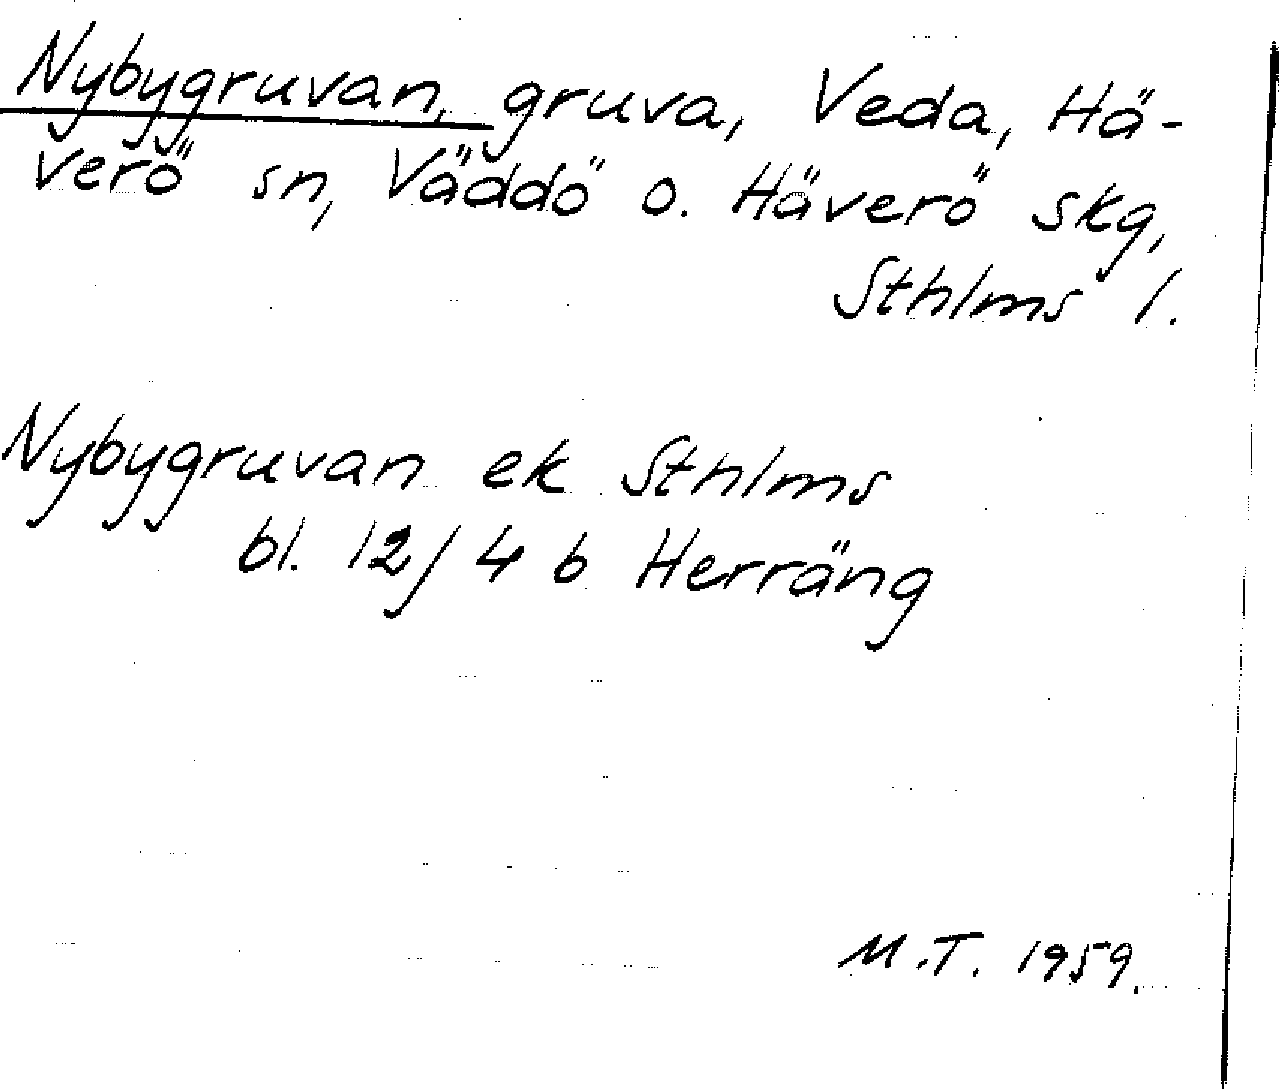 Nybygruvan, gruva, Veda, Hä-
verö sn, Väddö o. Häverö skg,
Sthlms l.
Nybygruvan ek Sthlms
bl. 12/4 b Herräng
M.T. 1959.